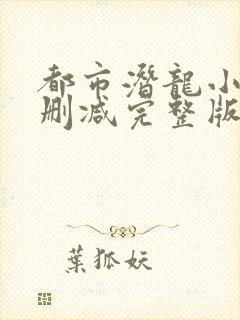 都市潛龍小
删减完整版
葉狐妖